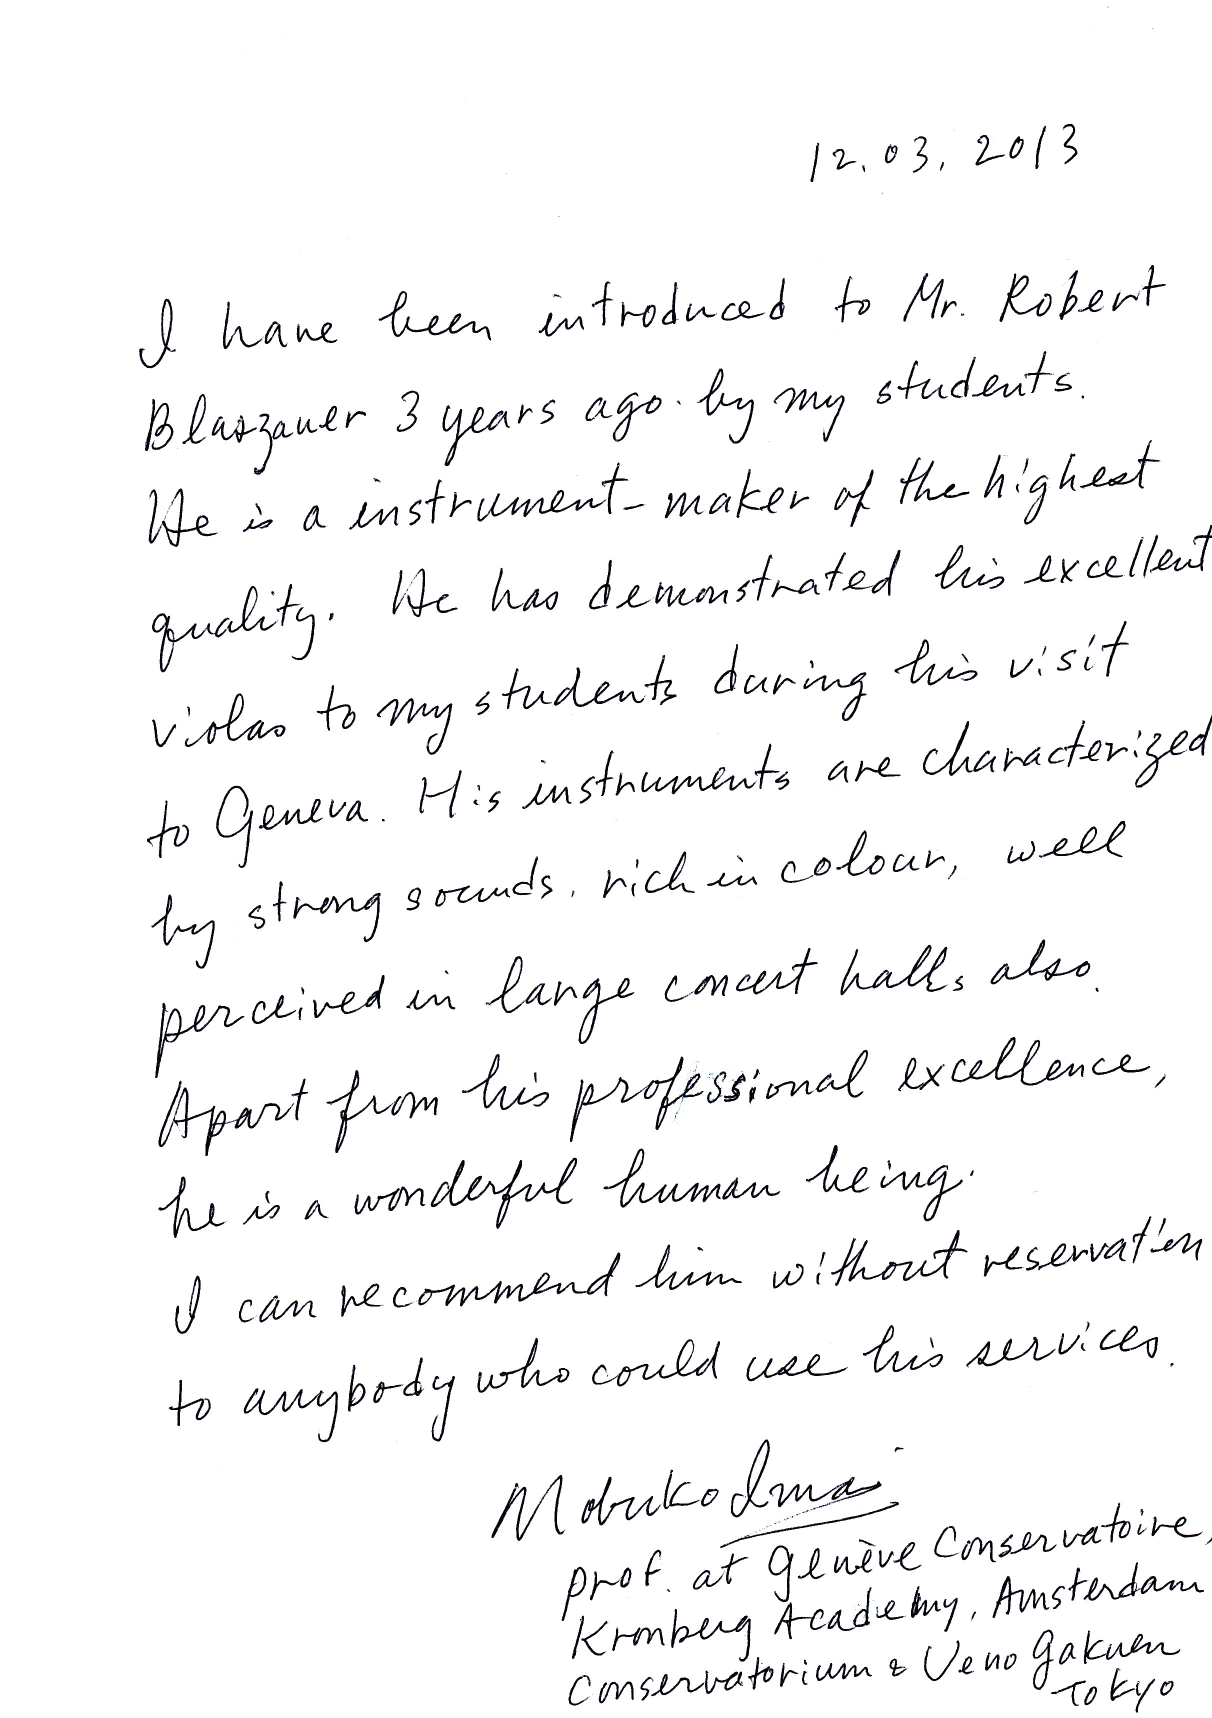 12.03.2013
I have been introduced to Mr. Robert
Blaszauer 3 years ago by my students.
He is a instrument-maker of the highest
quality. He has demonstrated his excellent
violas to my students during his visit
to Geneva. His instruments are characterized
by strong sounds, rich in colour, well
perceived in large concert halls also.
Apart from his professional excellence,
he is a wonderful human being.
I can recommend him without reservation
to anybody who could use his services.
Nobuko Imai
prof. at Genève Conservatoire,
Kronberg Academy, Amsterdam
Conservatorium & Ueno Gakuen
Tokyo